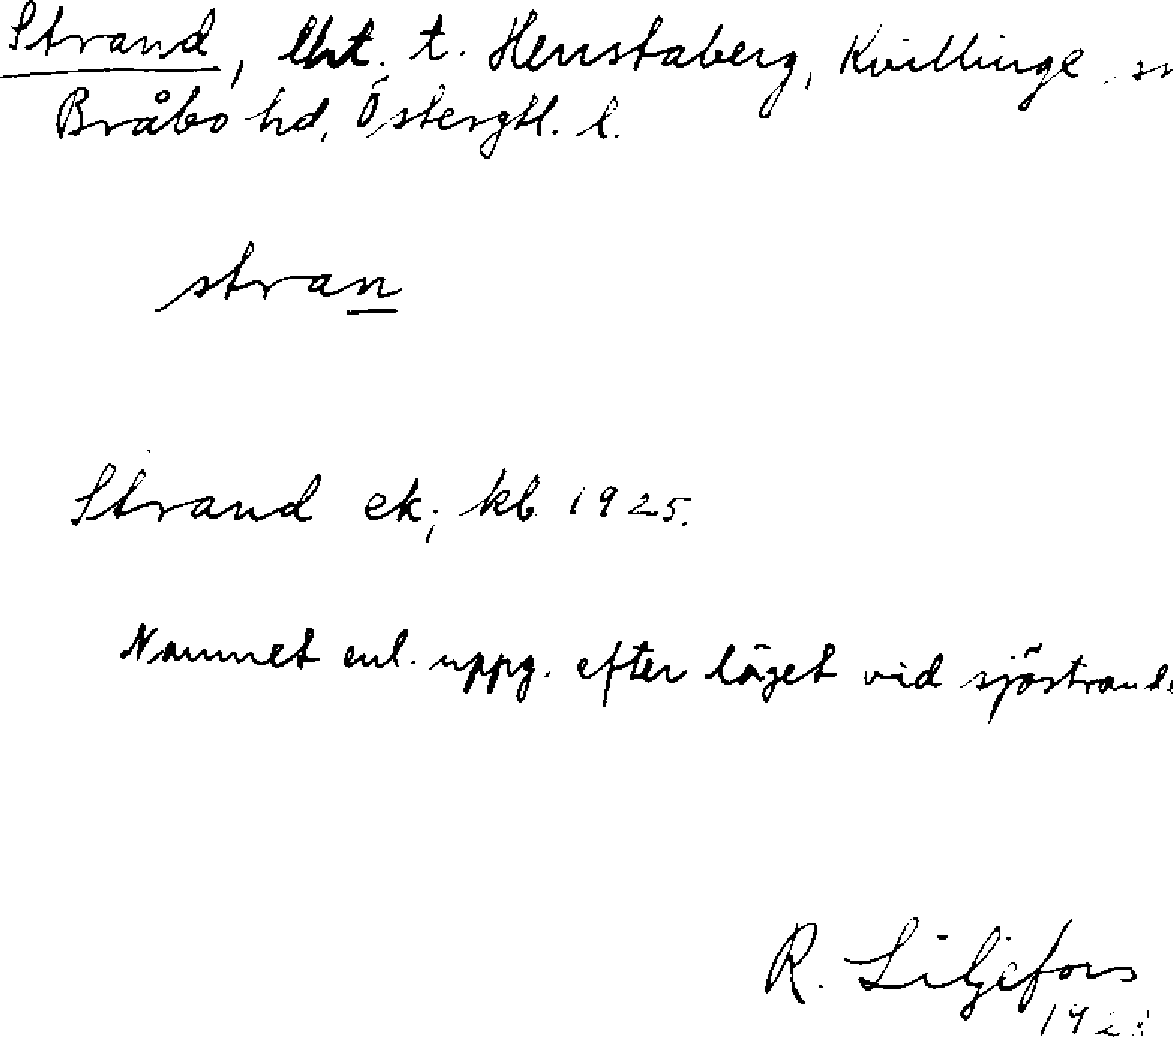 Strand, lht. t. Herrstaberg, Kvillinge sn
Bråbo hd, Östergtl. l.
stran
Strand ek; kb 1925.
Namnet enl. uppg. efter läget vid sjöstrand
R. Liljefors